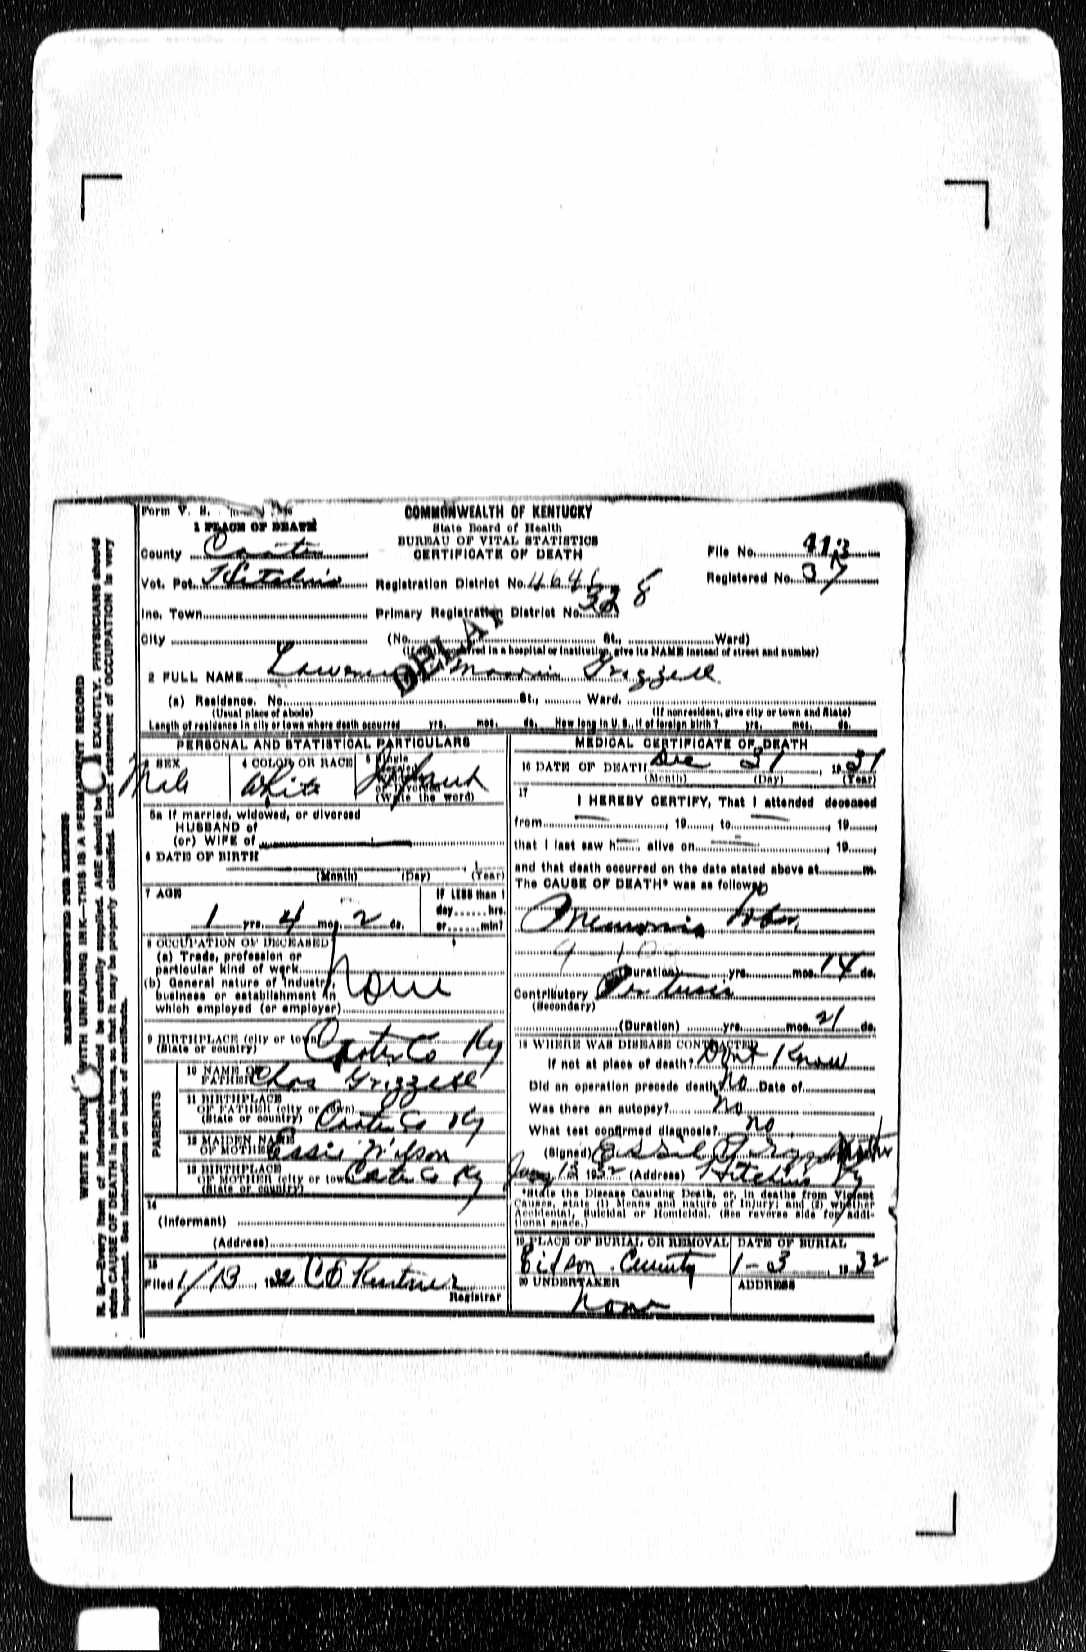 Form V. S.
1 PLACE OF DEATH
COMMONWEALTH OF KENTUCKY
State Board of Health
BUREAU OF VITAL STATISTICS
CERTIFICATE OF DEATH
County Carter
File No. 413
Vot. Pct. Hitchins
Registration District No.
Registered No. 37
Inc. Town
Primary Registration District No. 328
City (No. St., Ward)
(If death occurred in a hospital or institution, give its NAME instead of street and number)
DELAY
2 FULL NAME Lawrence Grizzell
(a) Residence. No. St., Ward.
(Usual place of abode) (If nonresident, give city or town and State)
Length of residence in city or town where death occurred yrs. mos. ds. How long in U. S., if of foreign birth? yrs. mos. ds.
PERSONAL AND STATISTICAL PARTICULARS
3 SEX
Male
4 COLOR OR RACE
White
5 Single
(Write the word)
5a If married, widowed, or divorced
HUSBAND of
(or) WIFE of
6 DATE OF BIRTH
(Month) (Day) (Year)
7 AGE
1 yrs. 4 mos. 2 ds.
If LESS than 1
day hrs.
or min?
8 OCCUPATION OF DECEASED
(a) Trade, profession or
particular kind of work
(b) General nature of industry,
business or establishment in
which employed (or employer)
None
9 BIRTHPLACE (city or town)
(State or country)
Carter Co Ky
PARENTS
10 NAME OF
FATHER Chas Grizzell
11 BIRTHPLACE
OF FATHER (city or town)
(State or country) Carter Co Ky
12 MAIDEN NAME
OF MOTHER Essie Wilson
13 BIRTHPLACE
OF MOTHER (city or town)
(State or country) Carter Co Ky
14
(Informant)
(Address)
15
Filed 1/13, 1932 C E
Registrar
MEDICAL CERTIFICATE OF DEATH
16 DATE OF DEATH Dec 31, 1931
(Month) (Day) (Year)
17
I HEREBY CERTIFY, That I attended deceased
from , 19 , to , 19 ,
that I last saw h alive on , 19 ,
and that death occurred on the date stated above at m.
The CAUSE OF DEATH* was as follows:
(Duration) yrs. mos. 14 ds.
Contributory
(Secondary)
(Duration) yrs. mos. 21 ds.
18 WHERE WAS DISEASE CONTRACTED
If not at place of death? Dont Know
Did an operation precede death No Date of
Was there an autopsy? no
What test confirmed diagnosis? no
(Signed)
Jany 13 1932 (Address) Hitchins Ky
*State the Disease Causing Death, or, in deaths from Violent
Causes, state (1) Means and nature of Injury; and (2) whether
Accidental, Suicidal or Homicidal. (See reverse side for addi-
tional space.)
19 PLACE OF BURIAL OR REMOVAL
DATE OF BURIAL
1-3, 1932
20 UNDERTAKER
none
ADDRESS
MARGIN RESERVED FOR BINDING
WRITE PLAINLY WITH UNFADING INK—THIS IS A PERMANENT RECORD
N. B.—Every item of information should be carefully supplied. AGE should be EXACTLY. PHYSICIANS should
state CAUSE OF DEATH in plain terms, so that it may be properly classified. Exact statement of OCCUPATION is very
important. See instructions on back of certificate.